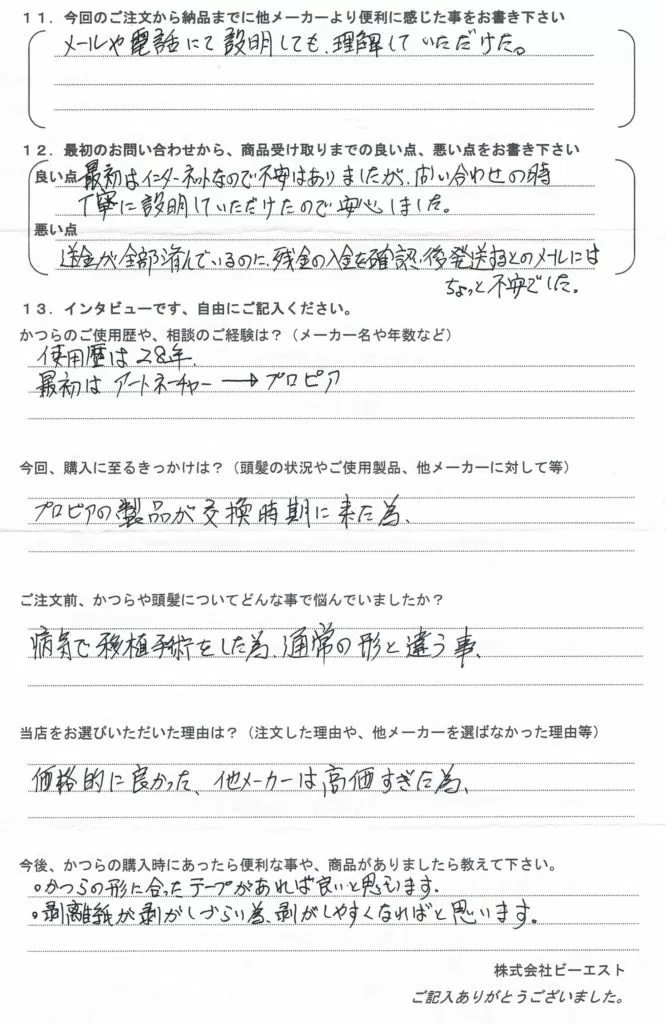 11．今回のご注文から納品までに他メーカーより便利に感じた事をお書き下さい
メールや電話にて説明しても、理解していただけた。
12．最初のお問い合わせから、商品受け取りまでの良い点、悪い点をお書き下さい
良い点 最初はインターネットなので不安はありましたが、問い合わせの時
丁寧に説明していただけたので安心しました。
悪い点
送金が全部済んでいるのに、残金の入金を確認後発送するとのメールには
ちょっと不安でした。
13．インタビューです、自由にご記入ください。
かつらのご使用歴や、相談のご経験は？（メーカー名や年数など）
使用歴は28年、
最初は アートネーチャー → プロピア
今回、購入に至るきっかけは？（頭髪の状況やご使用製品、他メーカーに対して等）
プロピアの製品が交換時期に来た為、
ご注文前、かつらや頭髪についてどんな事で悩んでいましたか？
病気で移植手術をした為、通常の形と違う事、
当店をお選びいただいた理由は？（注文した理由や、他メーカーを選ばなかった理由等）
価格的に良かった、他メーカーは高価すぎた為、
今後、かつらの購入時にあったら便利な事や、商品がありましたら教えて下さい。
○かつらの形に合ったテープがあれば良いと思います．
○剥離紙が剥がしづらい為、剥がしやすくなればと思います。
株式会社ビーエスト
ご記入ありがとうございました。